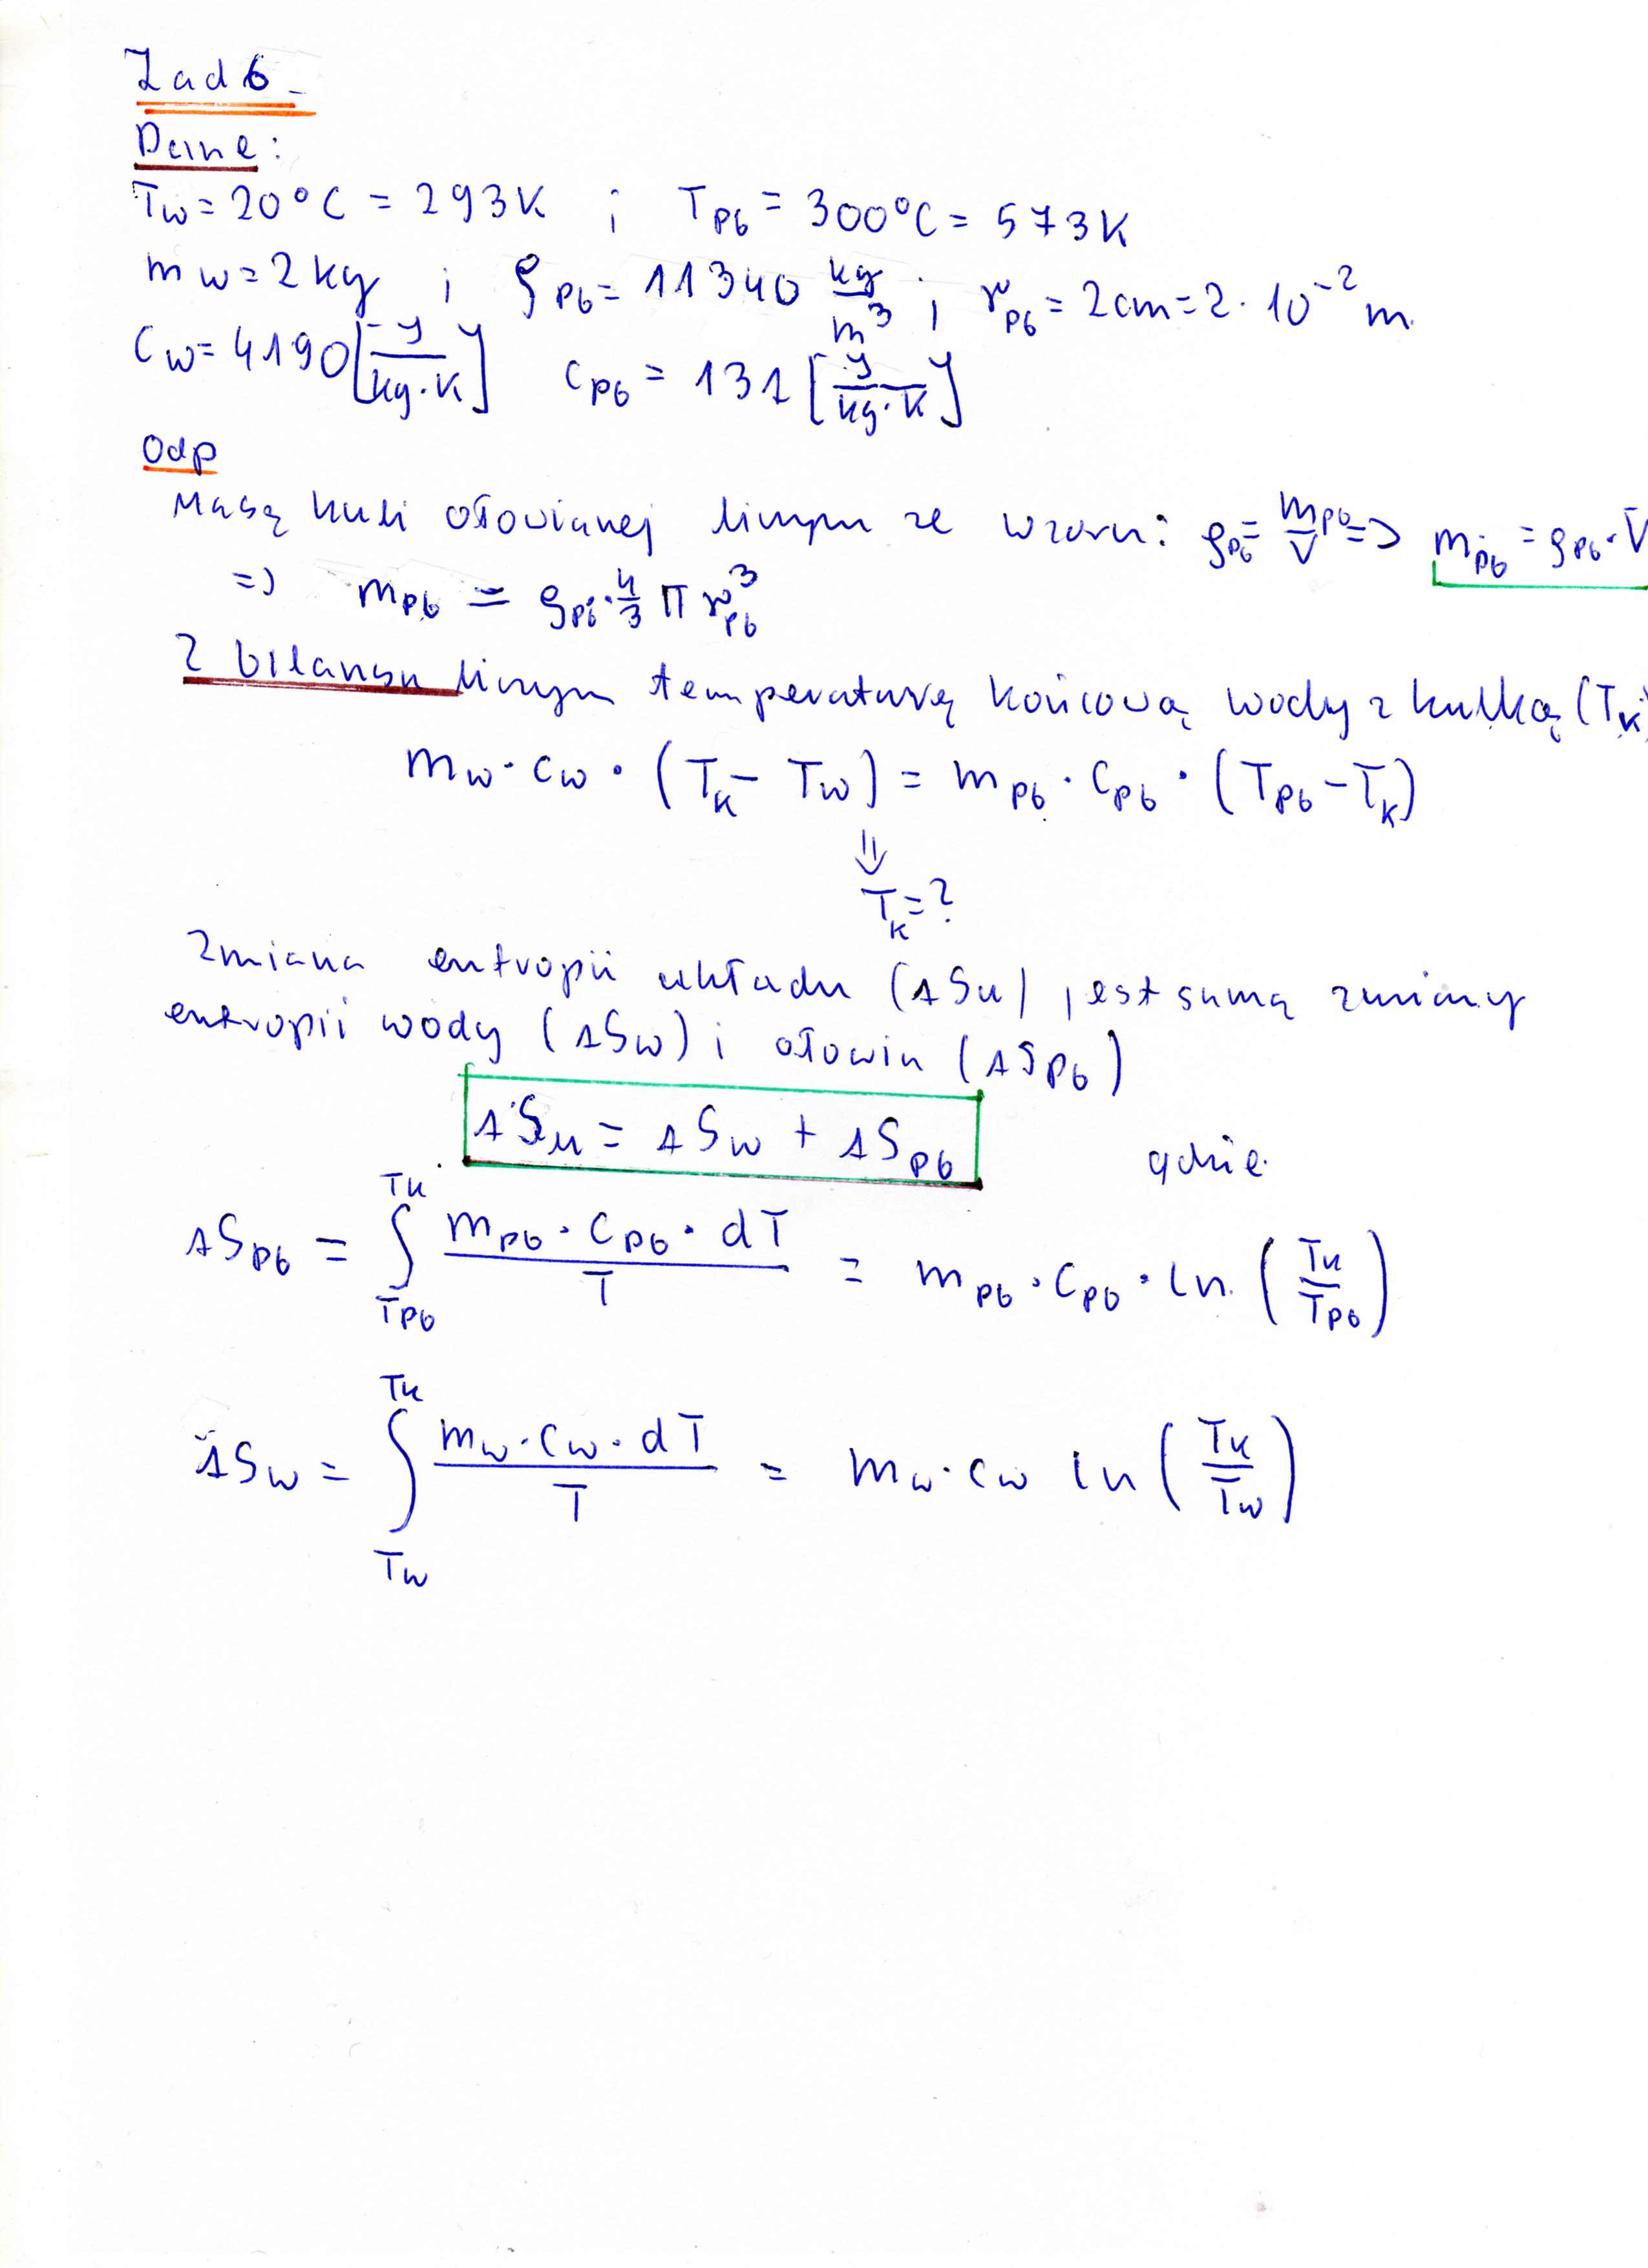 Zad 6
Dane:
T_w = 20°C = 293K ; T_Pb = 300°C = 573K
m_w = 2 kg ; ρ_Pb = 11340 kg/m³ ; r_Pb = 2cm = 2·10⁻² m
c_w = 4190 [J/kg·K] c_Pb = 131 [J/kg·K]
Odp
Masę kuli ołowianej liczymy ze wzoru: ρ_Pb = m_Pb/V => m_Pb = ρ_Pb · V
=> m_Pb = ρ_Pb · 4/3 π r_Pb³
Z bilansu liczymy temperaturę końcową wody z kulką (T_k)
m_w · c_w · (T_k − T_w) = m_Pb · c_Pb · (T_Pb − T_k)
⇓
T_k = ?
Zmiana entropii układu (ΔS_u) jest sumą zmiany
entropii wody (ΔS_w) i ołowiu (ΔS_Pb)
ΔS_u = ΔS_w + ΔS_Pb gdzie
ΔS_Pb = ∫_{T_Pb}^{T_k} m_Pb · c_Pb · dT / T = m_Pb · c_Pb · ln (T_k/T_Pb)
ΔS_w = ∫_{T_w}^{T_k} m_w · c_w · dT / T = m_w · c_w ln (T_k/T_w)